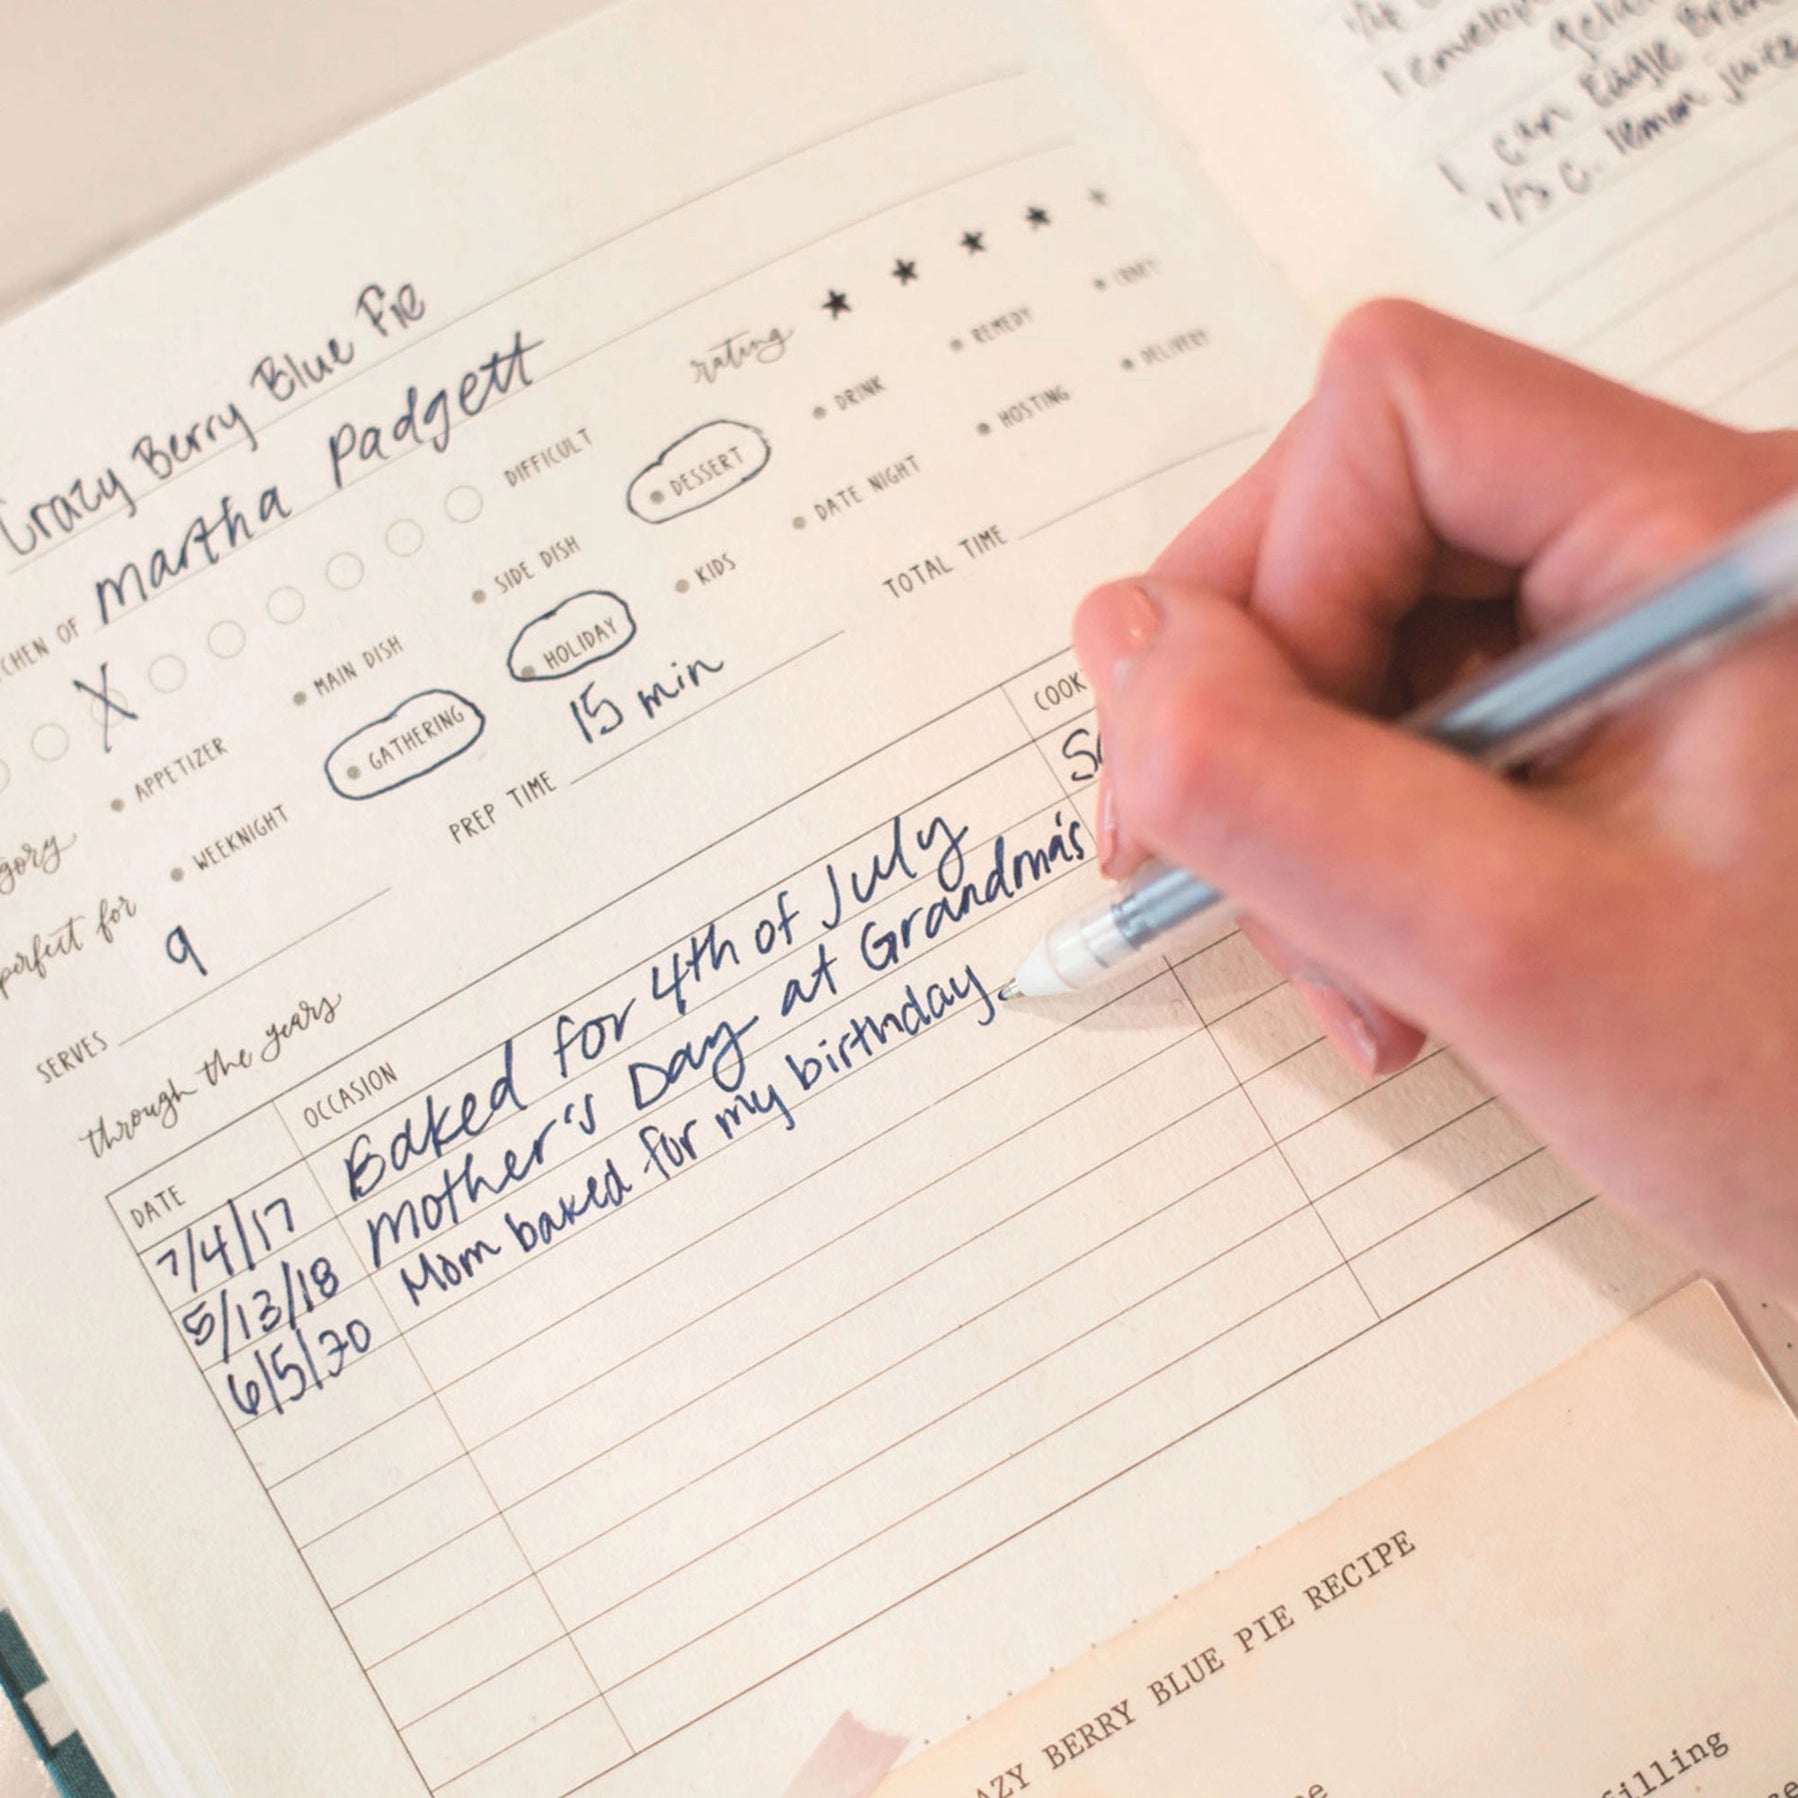 Crazy Berry Blue Pie
OF Martha Padgett
DIFFICULT
rating ★ ★ ★ ★ ★
X
APPETIZER • MAIN DISH • SIDE DISH • DESSERT • DRINK • REMEDY • CRAFT
perfect for • WEEKNIGHT • GATHERING • HOLIDAY • KIDS • DATE NIGHT • HOSTING • DELIVERY
SERVES 9 PREP TIME 15 min TOTAL TIME
through the years
DATE OCCASION COOK
7/4/17 Baked for 4th of July
5/13/18 Mother's Day at Grandma's
6/5/20 Mom baked for my birthday.
BERRY BLUE PIE RECIPE
1 can Eagle
1/3 c. lemon juice